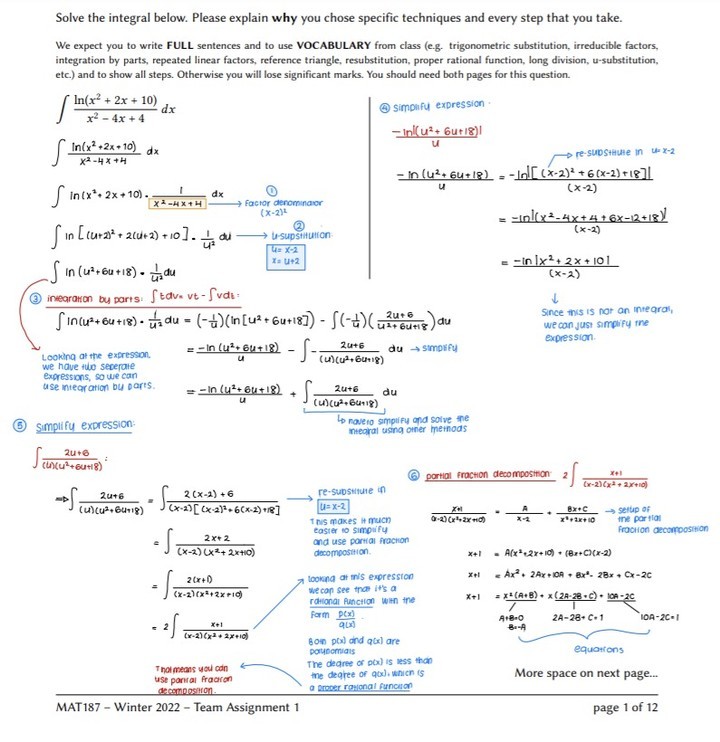 Solve the integral below. Please explain why you chose specific techniques and every step that you take.
We expect you to write FULL sentences and to use VOCABULARY from class (e.g. trigonometric substitution, irreducible factors,
integration by parts, repeated linear factors, reference triangle, resubstitution, proper rational function, long division, u-substitution,
etc.) and to show all steps. Otherwise you will lose significant marks. You should need both pages for this question.
∫ ln(x² + 2x + 10) / (x² − 4x + 4) dx
∫ ln(x² + 2x + 10) / (x² - 4x + 4) dx
∫ ln(x² + 2x + 10) · 1/(x² - 4x + 4) dx
① → factor denominator
(x-2)²
∫ ln[(u+2)² + 2(u+2) + 10] · 1/u² du
② → u-substitution
u = x-2
x = u+2
∫ ln(u² + 6u + 18) · 1/u² du
③ integration by parts: ∫tdv = vt - ∫vdt:
∫ ln(u² + 6u + 18) · 1/u² du = (-1/u)(ln[u² + 6u + 18]) - ∫(-1/u)((2u+6)/(u² + 6u + 18)) du
Looking at the expression,
we have two seperate
expressions, so we can
use integration by parts.
= -ln(u² + 6u + 18)/u - ∫ - (2u+6)/((u)(u² + 6u + 18)) du → simplify
= -ln(u² + 6u + 18)/u + ∫ (2u+6)/((u)(u² + 6u + 18)) du
↳ have to simplify and solve the
integral using other methods
④ simplify expression:
-ln|(u² + 6u + 18)|/u
→ re-substitute in u = x-2
-ln(u² + 6u + 18)/u = -ln|[(x-2)² + 6(x-2) + 18]|/(x-2)
= -ln|(x² - 4x + 4 + 6x - 12 + 18)|/(x-2)
= -ln|x² + 2x + 10|/(x-2)
Since this is not an integral,
we can just simplify the
expression.
⑤ simplify expression:
∫ (2u+6)/((u)(u² + 6u + 18)) :
⇒ ∫ (2u+6)/((u)(u² + 6u + 18)) = ∫ (2(x-2) + 6)/((x-2)[(x-2)² + 6(x-2) + 18])
= ∫ (2x+2)/((x-2)(x² + 2x + 10))
= ∫ 2(x+1)/((x-2)(x² + 2x + 10))
= 2∫ (x+1)/((x-2)(x² + 2x + 10))
re-substitute in
u = x-2
This makes it much
easier to simplify
and use partial fraction
decomposition.
looking at this expression
we can see that it's a
rational function with the
form p(x)/q(x)
Both p(x) and q(x) are
polynomials
The degree of p(x) is less than
the degree of q(x), which is
a proper rational function
That means you can
use partial fraction
decomposition.
⑥ partial fraction decomposition: 2∫ (x+1)/((x-2)(x² + 2x + 10))
(x+1)/((x-2)(x² + 2x + 10)) = A/(x-2) + (Bx+C)/(x² + 2x + 10) → setup of
the partial
fraction decomposition
x+1 = A(x² + 2x + 10) + (Bx+C)(x-2)
x+1 = Ax² + 2Ax + 10A + Bx² - 2Bx + Cx - 2C
x+1 = x²(A+B) + x(2A-2B+C) + 10A-2C
A+B=0 2A-2B+C=1 10A-2C=1
B=-A
equations
More space on next page...
MAT187 – Winter 2022 – Team Assignment 1 page 1 of 12